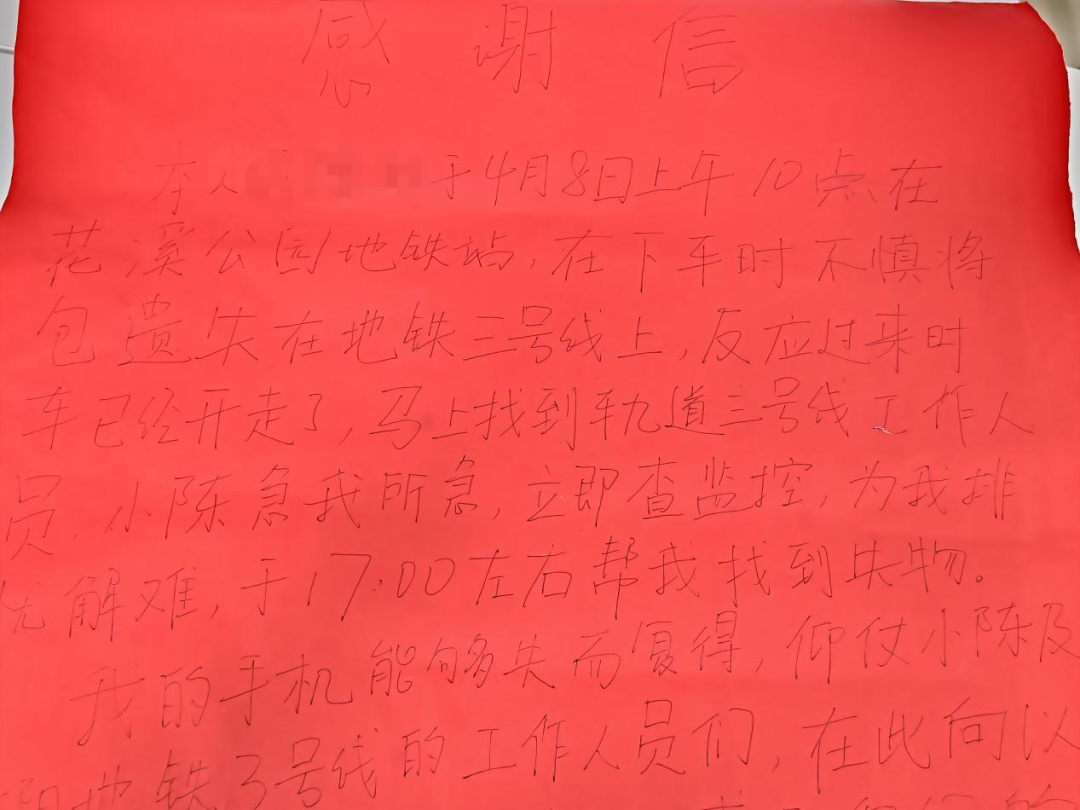 感谢信
本人 于4月8日上午10点在
花溪公园地铁站，在下车时不慎将
包遗失在地铁三号线上，反应过来时
车已经开走了，马上找到轨道三号线工作人
员，小陈急我所急，立即查监控，为我排
忧解难，于17:00左右帮我找到失物。
我的手机能够失而复得，仰仗小陈及
阳地铁3号线的工作人员们，在此向以